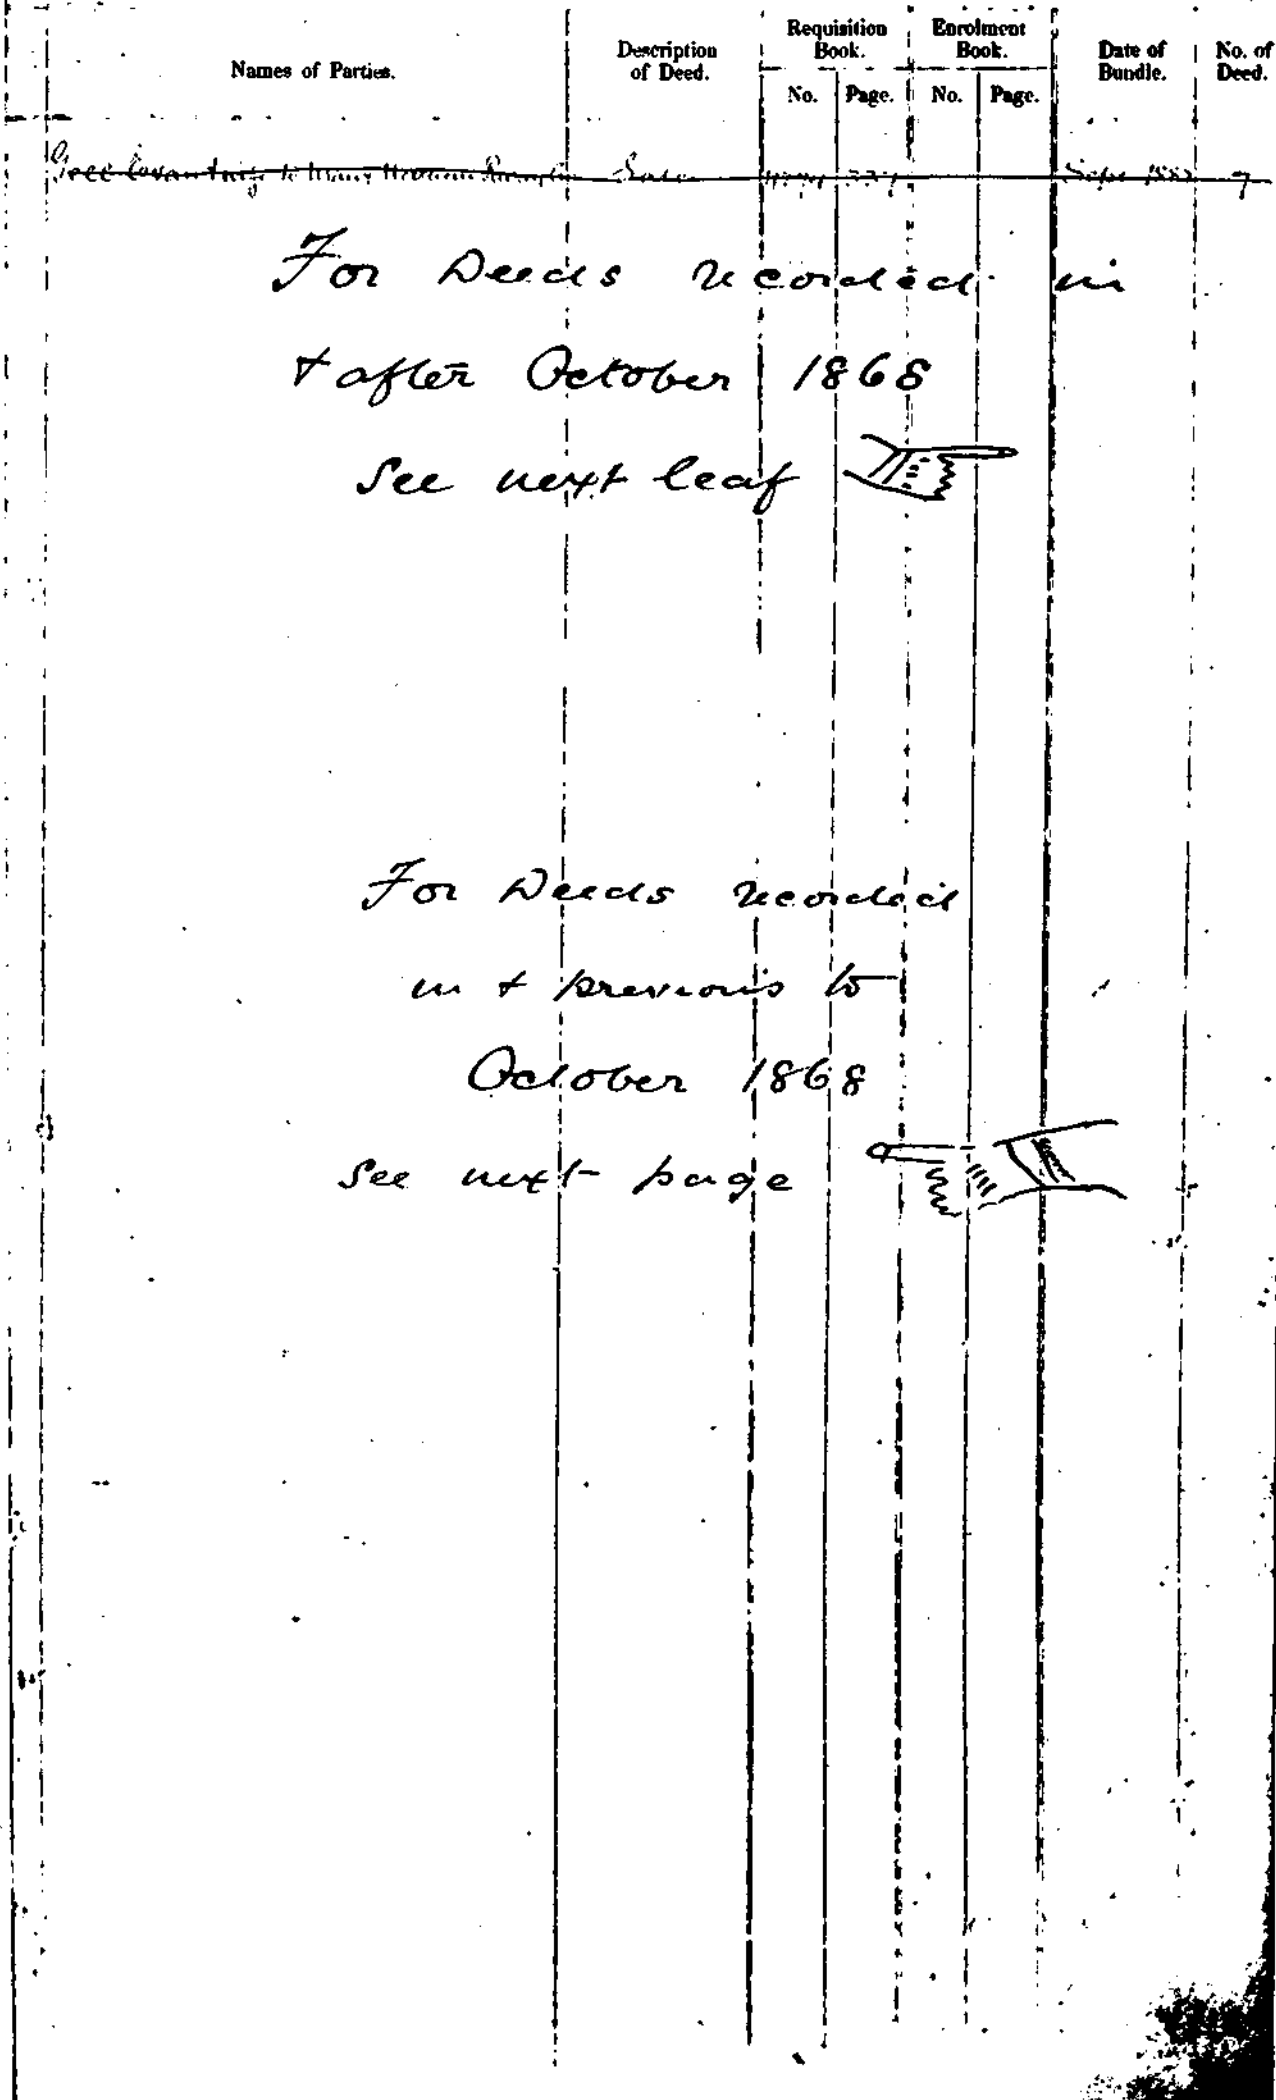 Names of Parties. Description of Deed. Requisition Book. Enrolment Book. Date of Bundle. No. of Deed.
No. Page. No. Page.
to Sale Sept 7
For Deeds recorded in
+ after October 1868
See next leaf
For Deeds recorded
in + previous to
October 1868
See next page